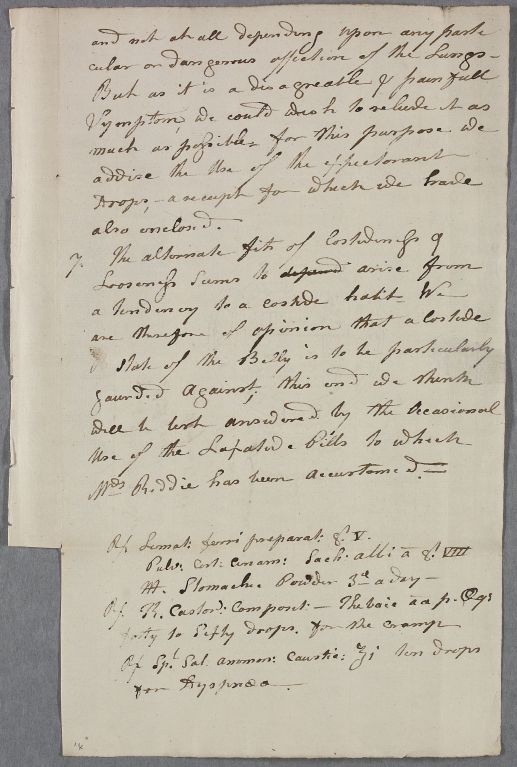 and not at all depending upon any parti
cular or dangerous affection of the Lungs -
But as it is a disagreable & painfull
Symptom, we could wish to releive it as
much as possible - for this purpose we
advise the Use of the expectorant
Drops, - a receipt for which we have
also enclosed.
7. The alternate fits of Costiveness &
Looseness seems to depend arise from
a tendency to a costive habit We
are therefore of opinion that a Costive
State of the Belly is to be particularly
gaurded Against; this end we think
will be best answered by the Occasional
Use of the Laxative Pills to which
Mrs Riddie has been Accustomed. -
Rx Limat: ferri preparat: gr. V.
Pulv: Cort: Cinam: Sach: albi a gr. VIII
M. Stomachic Powder 3d a day -
Rx. T. Castor: Composit: - Thebaic aa p.
forty to fifty drops. for the cramp
Rx Spt Sal. ammon: Caustic: ʒi ten drops
for Dyspnea -